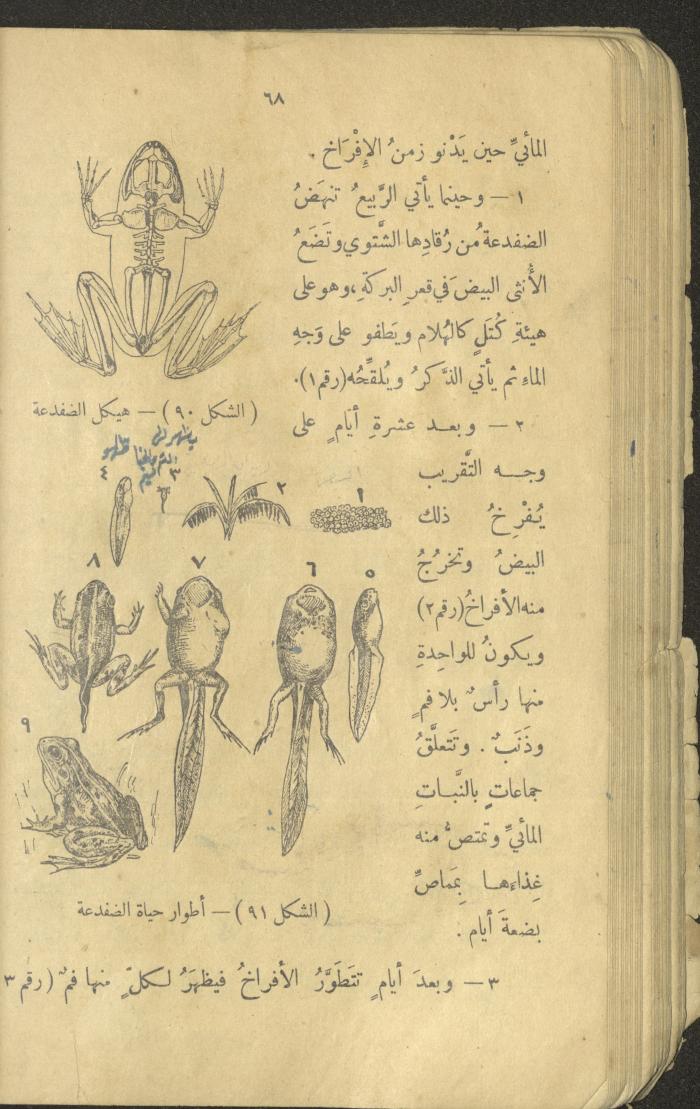 ٦٨
المائيِّ حين يَدْنو زمنُ الإِفْرَاخِ .
١ — وحينما يأتي الرَّبيعُ تنهَضُ
الضفدعةُ من رُقادِها الشَّتوي وتَضَعُ
الأُنثى البيضَ في قعرِ البركةِ، وهو على
هيئةِ كُتَلٍ كالهُلام ويَطفو على وَجهِ
الماءِ ثم يأتي الذَّكرُ ويُلقِّحُه (رقم ١).
(الشكل ٩٠) — هيكل الضفدعة
٢ — وبعد عشرةِ أيامٍ على
وجه التَّقريب
يُفْرِخُ ذلك
البيضُ وتخرُجُ
منه الأفراخُ (رقم ٢)
ويكونُ للواحِدةِ
منها رأسٌ بلا فمٍ
وذَنَبٌ . وتَتَعلَّقُ
جماعاتٍ بالنَّباتِ
المائيِّ وتمتصُّ منه
غِذاءَها بِمَماصِّ
بضعةَ أيام .
١
٢
٣
٤
٥
٦
٧
٨
٩
(الشكل ٩١) — أطوار حياة الضفدعة
٣ — وبعدَ أيامٍ تتَطَوَّرُ الأفراخُ فيظهَرُ لكلٍّ منها فمٌ (رقم ٣